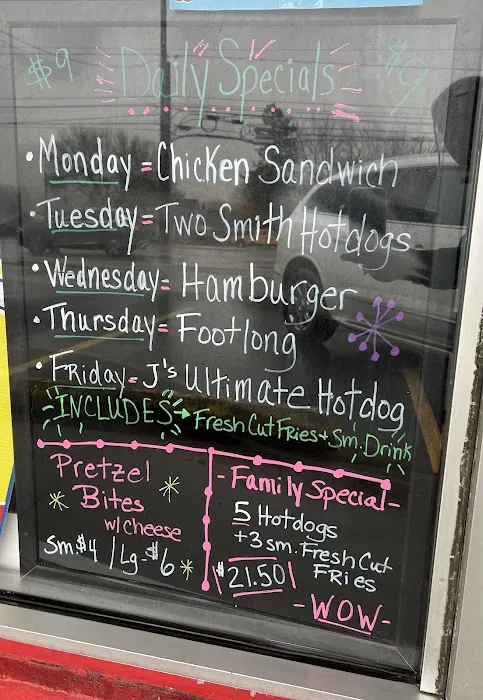 $9 Daily Specials $9
• Monday = Chicken Sandwich
• Tuesday = Two Smith Hotdogs
• Wednesday = Hamburger
• Thursday = Footlong
• Friday = J's Ultimate Hotdog
INCLUDES → Fresh Cut Fries + Sm. Drink
Pretzel
Bites
w/cheese
Sm $4 / Lg - $6
- Family Special -
5 Hotdogs
+ 3 sm. Fresh Cut
Fries
$21.50
- WOW -